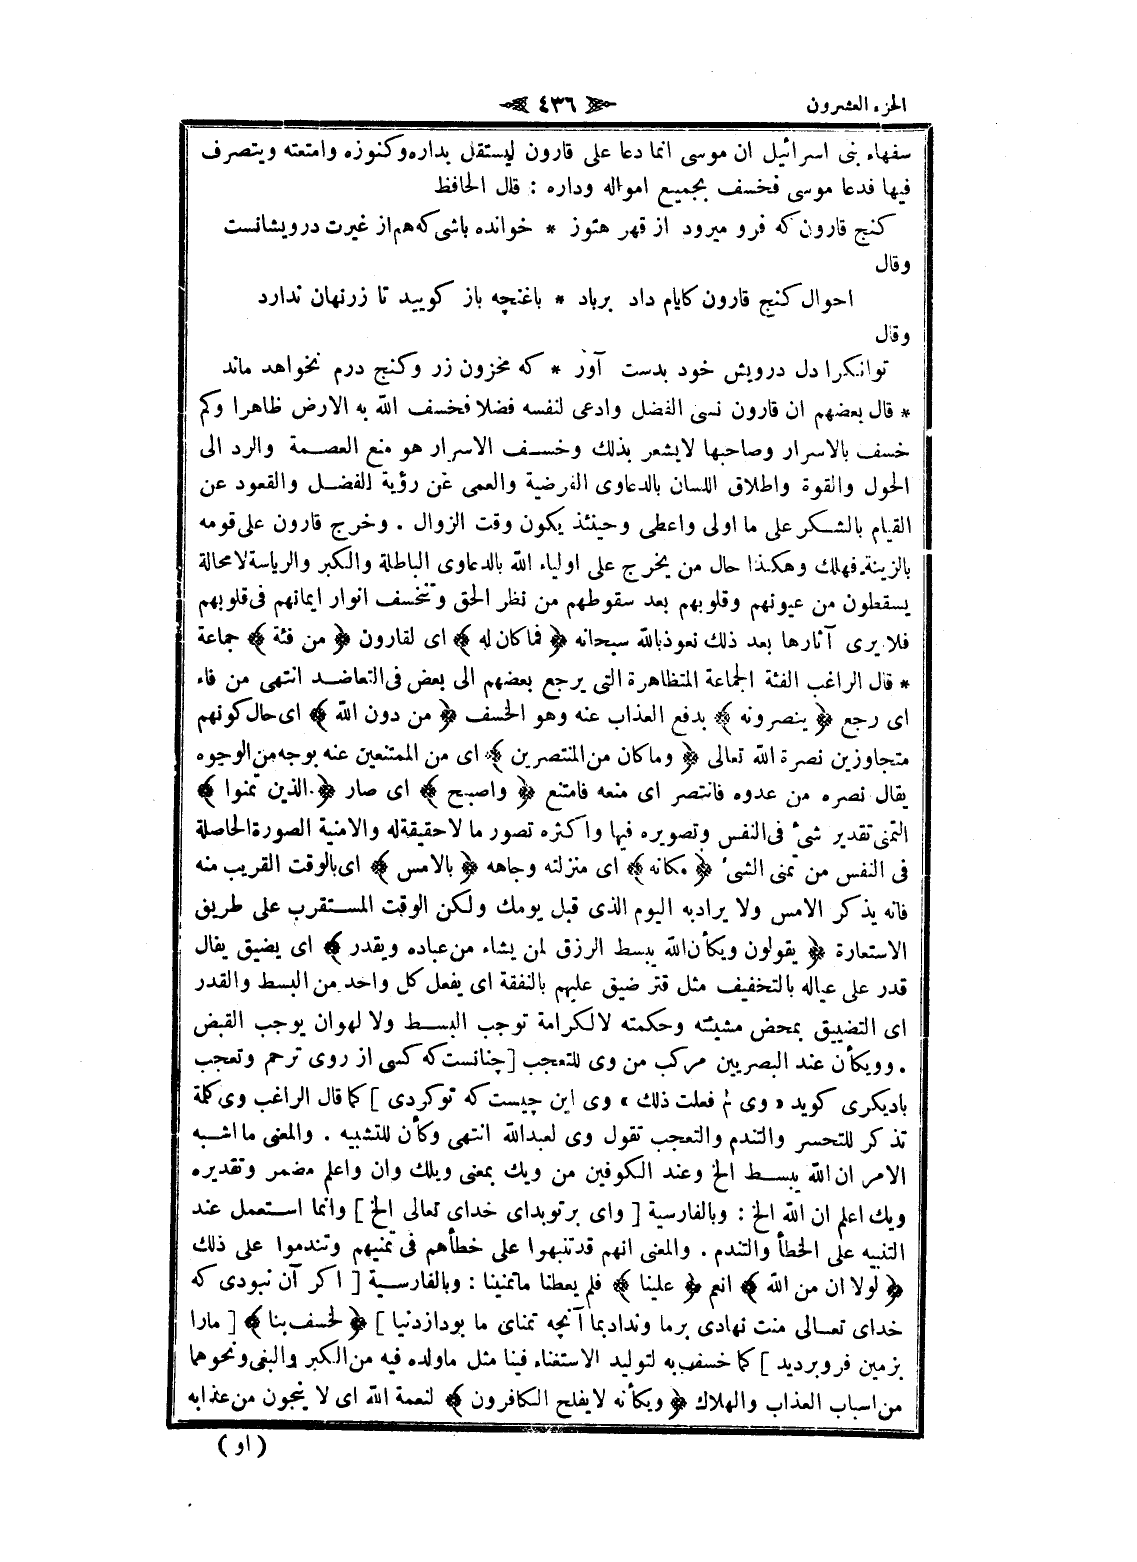 الجزء العشرون
٤٣٦
سفهاء بنى اسرائيل ان موسى انما دعا على قارون ليستقل بداره وكنوزه وامتعته ويتصرف
فيها فدعا موسى فخسف بجميع امواله وداره : قال الحافظ
كنج قارون كه فرو ميرود از قهر هنوز * خوانده باشى كه هم از غيرت درويشانست
وقال
احوال كنج قارون كايام داد برباد * باغنچه باز كوييد تا زرنهان ندارد
وقال
توانكرا دل درويش خود بدست آور * كه مخزون زر وكنج درم نخواهد ماند
* قال بعضهم ان قارون نسى الفضل وادعى لنفسه فضلا فخسف الله به الارض ظاهرا وكم
خسف بالاسرار وصاحبها لايشعر بذلك وخسف الاسرار هو منع العصمة والرد الى
الحول والقوة واطلاق اللسان بالدعاوى العرضية والعمى عن رؤية الفضل والقعود عن
القيام بالشكر على ما اولى واعطى وحينئذ يكون وقت الزوال . وخرج قارون على قومه
بالزينة فهلك وهكذا حال من يخرج على اولياء الله بالدعاوى الباطلة والكبر والرياسة لامحالة
يسقطون من عيونهم وقلوبهم بعد سقوطهم من نظر الحق وتنخسف انوار ايمانهم فى قلوبهم
فلا يرى آثارها بعد ذلك نعوذ بالله سبحانه ﴿ فما كان له ﴾ اى لقارون ﴿ من فئة ﴾ جماعة
* قال الراغب الفئة الجماعة المتظاهرة التى يرجع بعضهم الى بعض فى التعاضد انتهى من فاء
اى رجع ﴿ ينصرونه ﴾ بدفع العذاب عنه وهو الخسف ﴿ من دون الله ﴾ اى حال كونهم
متجاوزين نصرة الله تعالى ﴿ وما كان من المنتصرين ﴾ اى من الممتنعين عنه بوجه من الوجوه
يقال نصره من عدوه فانتصر اى منعه فامتنع ﴿ واصبح ﴾ اى صار ﴿ الذين تمنوا ﴾
التمنى تقدير شئ فى النفس وتصويره فيها واكثره تصور ما لا حقيقة له والامنية الصورة الحاصلة
فى النفس من تمنى الشئ ﴿ مكانه ﴾ اى منزلته وجاهه ﴿ بالامس ﴾ اى بالوقت القريب منه
فانه يذكر الامس ولا يراد به اليوم الذى قبل يومك ولكن الوقت المستقرب على طريق
الاستعارة ﴿ يقولون ويكأن الله يبسط الرزق لمن يشاء من عباده ويقدر ﴾ اى يضيق يقال
قدر على عياله بالتخفيف مثل قتر ضيق عليهم بالنفقة اى يفعل كل واحد من البسط والقدر
اى التضييق بمحض مشيئته وحكمته لا لكرامة توجب البسط ولا لهوان يوجب القبض
. وويكأن عند البصريين مركب من وى للتعجب [چنانست كه كسى از روى ترحم وتعجب
باديكرى كويد « وى لم فعلت ذلك » وى اين چيست كه توكردى ] كما قال الراغب وى كلمة
تذكر للتحسر والتندم والتعجب تقول وى لعبد الله انتهى وكأن للتشبيه . والمعنى ما اشبه
الامر ان الله يبسط الخ وعند الكوفين من ويك بمعنى ويلك وان واعلم مضمر وتقديره
ويك اعلم ان الله الخ : وبالفارسية [ واى بر توبداى خداى تعالى الخ ] وانما استعمل عند
التنبيه على الخطأ والتندم . والمعنى انهم قد تنبهوا على خطأهم فى تمنيهم وتندموا على ذلك
﴿ لولا ان من الله ﴾ انعم ﴿ علينا ﴾ فلم يعطنا ماتمنينا : وبالفارسية [ اكر آن نبودى كه
خداى تعالى منت نهادى برما وندادبما آنچه تمناى ما بود ازدنيا ] ﴿ لخسف بنا ﴾ [ مارا
بزمين فروبرديد ] كما خسف به لتوليد الاستغناء فينا مثل ماولده فيه من الكبر والبغى ونحوهما
من اسباب العذاب والهلاك ﴿ ويكأنه لا يفلح الكافرون ﴾ لنعمة الله اى لا ينجون من عذابه
( او )